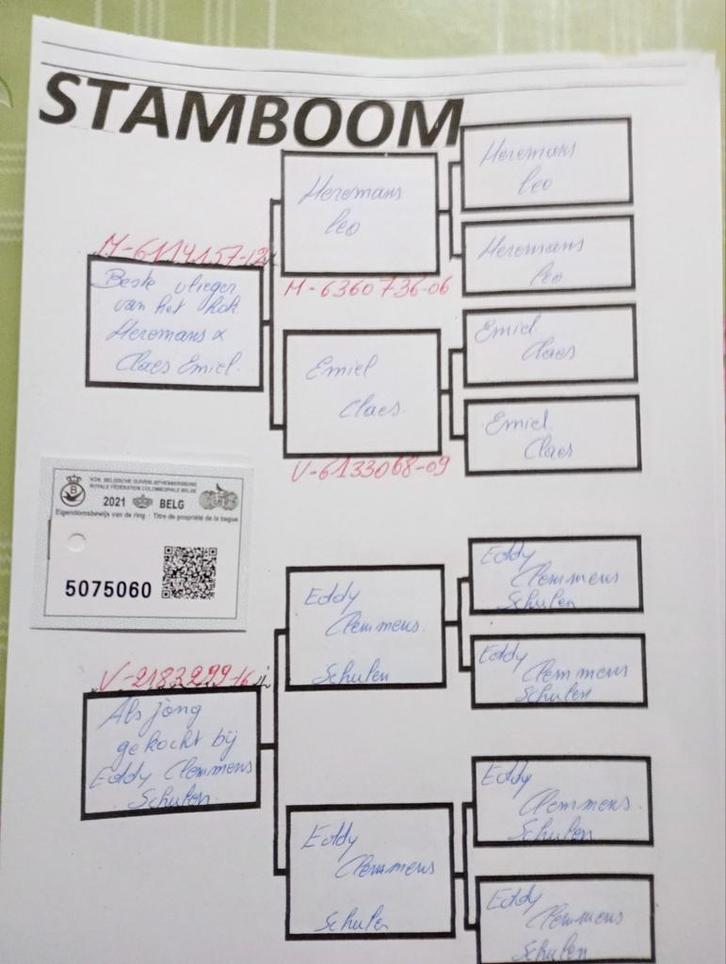 STAMBOOM
Heremans
Leo
Heremans
Leo
Heremans
Leo
M-6114157-12
Beste vlieger
van het hok
Heremans x
Claes Emiel.
M-6360736-06
Emiel
Claes.
Emiel
Claes
Emiel
Claes
V-6133068-09
KON. BELGISCHE DUIVENLIEFHEBBERSBOND
ROYALE FÉDÉRATION COLOMBOPHILE BELGE
2021 BELG
Eigendomsbewijs van de ring - Titre de propriété de la bague
5075060
Eddy
Clemmens.
Schulen
Eddy
Clemmens
Schulen
Eddy
Clemmens
Schulen
V-2183299-16
Als jong
gekocht bij
Eddy Clemmens
Schulen.
Eddy
Clemmens
Schulen
Eddy
Clemmens.
Schulen
Eddy
Clemmens
Schulen